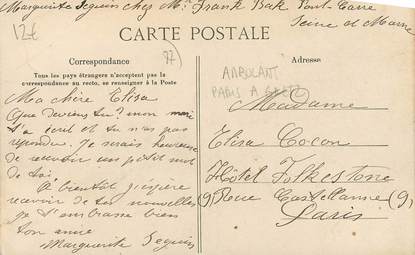 Marguerite Seguin chez Mr Frank Bak Pont-Carré
Seine et Marne
12€
77
CARTE POSTALE
Correspondance
Tous les pays étrangers n'acceptent pas la
correspondance au recto, se renseigner à la Poste
Adresse
AMBULANT
PARIS A
Ma chère Elisa
Que deviens tu? mon mari
t'a écrit et tu n'as pas
répondu. Je serais heureuse
de recevoir un petit mot
de toi.
A bientôt j'espère
recevoir de tes nouvelles
je t'embrasse bien
ton amie
Marguerite Seguin
Madame
Elisa Cocon
Hôtel Folkestone
(9) Rue Castellane (9)
Paris